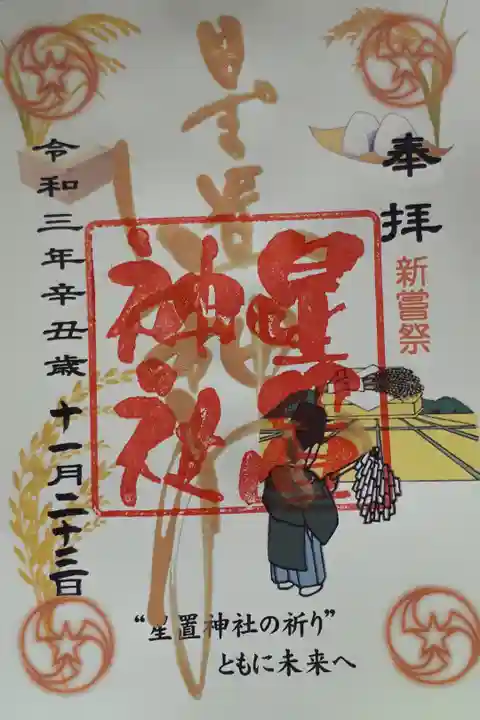 奉拝
新嘗祭
星置神社
星置神社
令和三年辛丑歳 十一月二十三日
“星置神社の祈り”
ともに未来へ